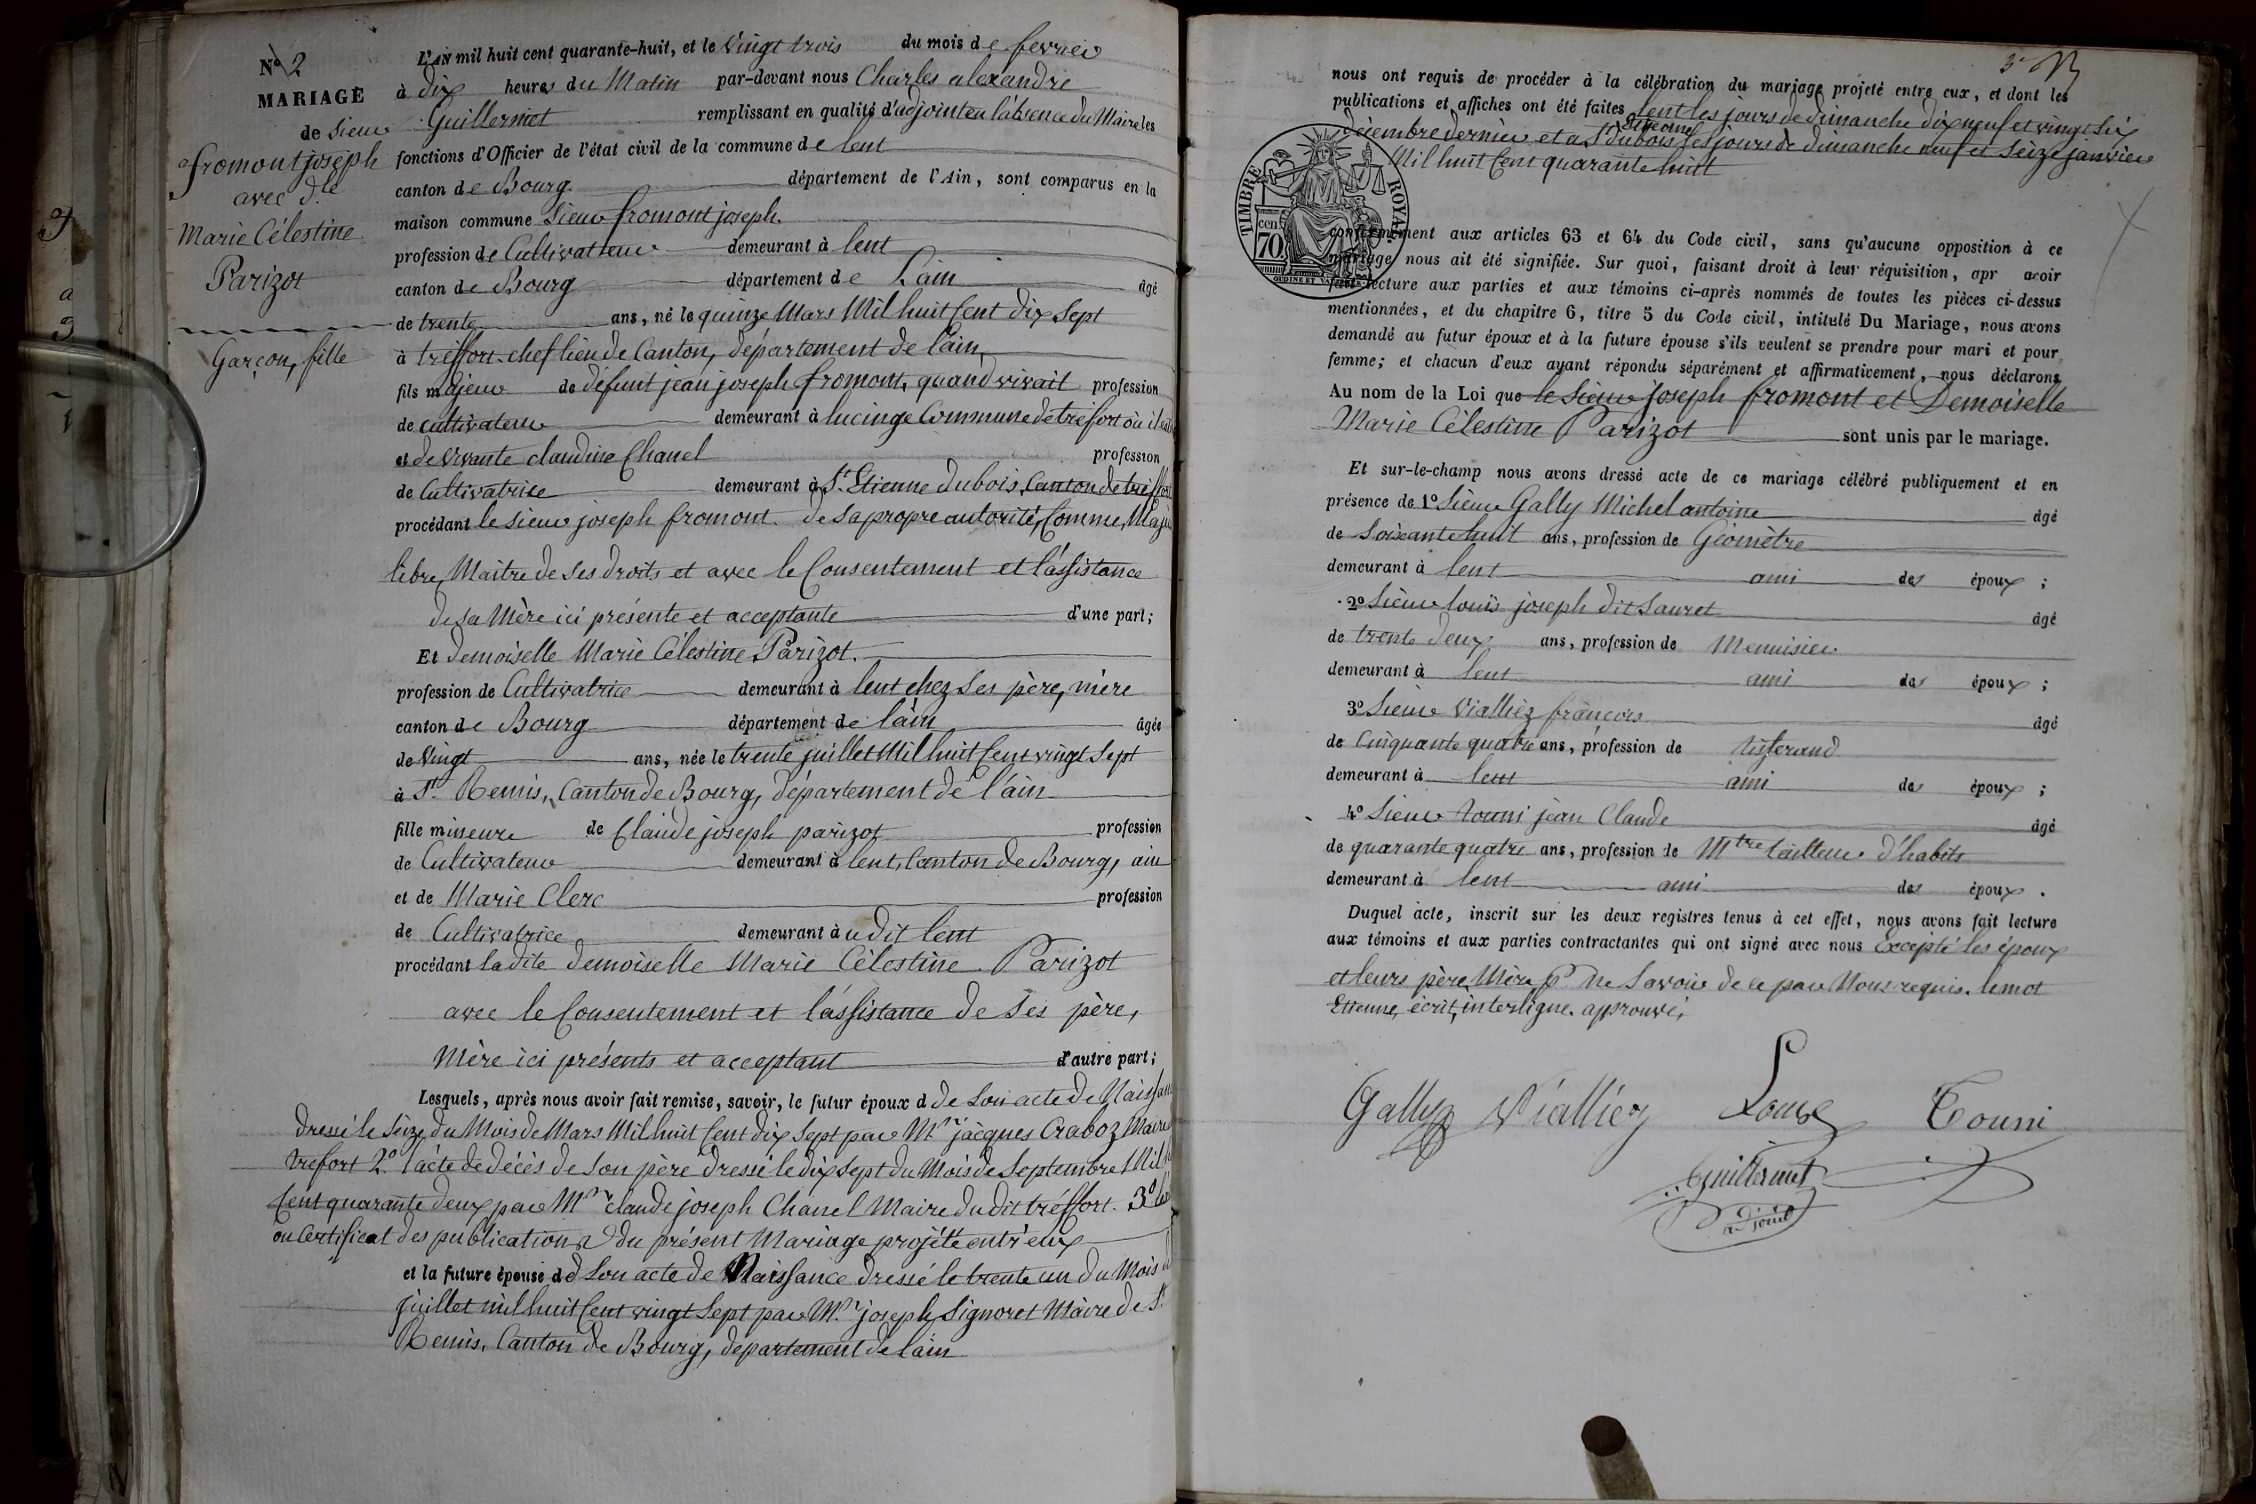 N° 2
MARIAGE
de Sieur
fromont joseph
avec d.lle
Marie Célestine
Parizot
Garçon, fille
L'AN mil huit cent quarante-huit, et le vingt trois du mois de fevrier
à dix heures du Matin par-devant nous Charles alexandre
Guillermet remplissant en qualité d'adjoint en l'absence du Maire les
fonctions d'Officier de l'état civil de la commune de lent
canton de Bourg département de l'Ain, sont comparus en la
maison commune Sieur fromont joseph
profession de Cultivateur demeurant à lent
canton de Bourg département de L'ain âgé
de trente ans, né le quinze Mars Mil huit Cent dix Sept
à tréffort chef lieu de Canton, département de l'ain,
fils majeur de défunt jean joseph fromont, quand vivait profession
de cultivateur demeurant à lucinge Commune de trefort où il est
et de vivante claudine Chanel profession
de Cultivatrice demeurant à St. Etienne dubois, Canton de tréffort
procédant le sieur joseph fromont. de sa propre autorité, Comme, Maje
libre, Maitre de ses droits et avec le Consentement et l'assistance
de sa Mère ici présente et acceptante d'une part;
Et demoiselle Marie Célestine Parizot.
profession de Cultivatrice demeurant à lent chez ses père, mère
canton de Bourg département de l'ain âgée
de vingt ans, née le trente juillet Mil huit Cent vingt sept
à St. Remis, Canton de Bourg, département de l'ain
fille mineure de Claude joseph parizot profession
de Cultivateur demeurant à lent, Canton de Bourg, ain
et de Marie Clerc profession
de Cultivatrice demeurant à udit lent
procédant ladite demoiselle Marie Célestine Parizot
avec le Consentement et l'assistance de ses père,
Mère ici présents et acceptant d'autre part;
Lesquels, après nous avoir fait remise, savoir, le futur époux d de Son acte de Naissan
dressé le Seize du Mois de Mars Mil huit Cent dix Sept par Mr. jacques Craboz Maire
trefort 2.° l'acte de décès de son père dressé le dix sept du Mois de Septembre Mil
Cent quarante deux par Mr. claude joseph Chanel Maire du dit tréffort. 3.°
ou Certificat des publications du présent Mariage projétté entr'eux
et la future épouse d d Son acte de Naissance dressé le trente un du Mois
juillet mil huit Cent vingt Sept par Mr. joseph Signoret Maire de St.
Remis, Canton de Bourg, departement de l'ain
nous ont requis de procéder à la célébration du mariage projeté entre eux, et dont les
publications et affiches ont été faites à lent les jours de dimanche dix neuf et vingt Six
décembre dernier et a St Etienne dubois les jours de dimanche neuf et Seize janvier
Mil huit Cent quarante huit
TIMBRE ROYAL
cen
70
conformément aux articles 63 et 64 du Code civil, sans qu'aucune opposition à ce
mariage nous ait été signifiée. Sur quoi, faisant droit à leur réquisition, apr avoir
fait lecture aux parties et aux témoins ci-après nommés de toutes les pièces ci-dessus
mentionnées, et du chapitre 6, titre 5 du Code civil, intitulé Du Mariage, nous avons
demandé au futur époux et à la future épouse s'ils veulent se prendre pour mari et pour
femme; et chacun d'eux ayant répondu séparément et affirmativement, nous déclarons
Au nom de la Loi que le Sieur joseph fromont et Demoiselle
Marie Célestine Parizot sont unis par le mariage.
Et sur-le-champ nous avons dressé acte de ce mariage célébré publiquement et en
présence de 1° Sieur Gally Michel antoine âgé
de Soixante huit ans, profession de Géomètre
demeurant à lent ami des époux ;
2° Sieur louis joseph dit Sauret âgé
de trente deux ans, profession de Menuisier
demeurant à lent ami des époux ;
3° Sieur Vialliez françois âgé
de Cinquante quatre ans, profession de tisserand
demeurant à lent ami des époux ;
4° Sieur touni jean Claude âgé
de quarante quatre ans, profession de Mtre tailleur d'habits
demeurant à lent ami des époux .
Duquel acte, inscrit sur les deux registres tenus à cet effet, nous avons fait lecture
aux témoins et aux parties contractantes qui ont signé avec nous Excepté les époux
et leurs père, Mère pr ne Savoir de ce par Nous requis. le mot
Etienne, écrit, interligne. approuvé,
Gally Vialliez Louis Touni
Guillermet
adjoint